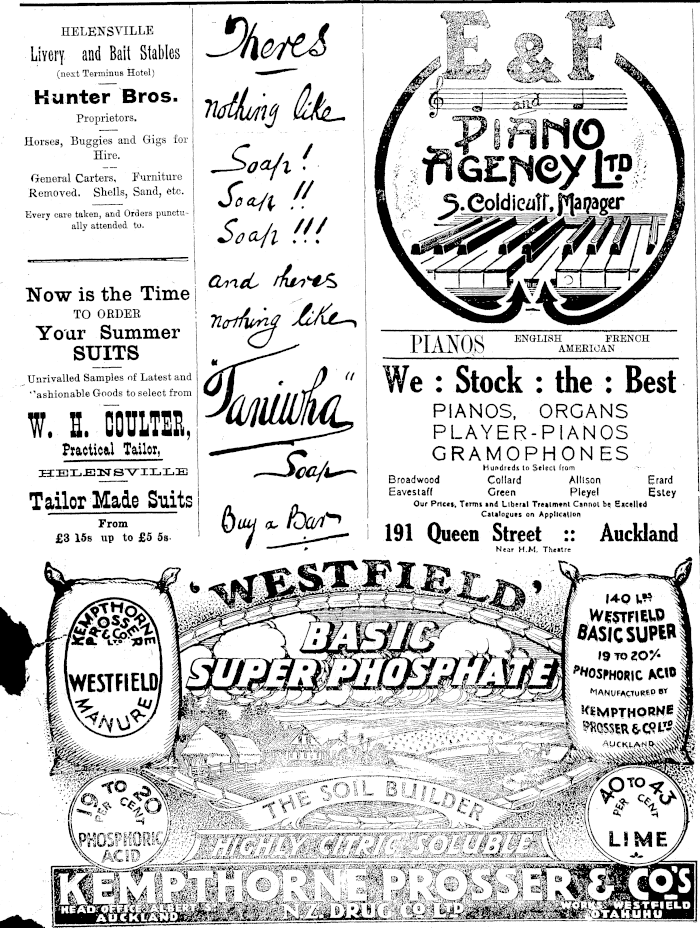 HELENSVILLE
Livery and Bait Stables
(next Terminus Hotel)
Hunter Bros.
Proprietors.
Horses, Buggies and Gigs for
Hire.
General Carters, Furniture
Removed. Shells, Sand, etc.
Every care taken, and Orders punctu-
ally attended to.
Now is the Time
TO ORDER
Your Summer
SUITS
Unrivalled Samples of Latest and
Fashionable Goods to select from
W. H. COULTER,
Practical Tailor,
HELENSVILLE
Tailor Made Suits
From
£3 15s up to £5 5s.
Theres
nothing like
Soap!
Soap!!
Soap!!!
and theres
nothing like
"Taniwha"
Soap
Buy a Bar
E & F
and
PIANO
AGENCY LTD
S. Coldicutt, Manager
PIANOS ENGLISH FRENCH
AMERICAN
We : Stock : the : Best
PIANOS, ORGANS
PLAYER-PIANOS
GRAMOPHONES
Hundreds to Select from
Broadwood Collard Allison Erard
Eavestaff Green Pleyel Estey
Our Prices, Terms and Liberal Treatment Cannot be Excelled
Catalogues on Application
191 Queen Street :: Auckland
Near H.M. Theatre
'WESTFIELD'
BASIC
SUPER PHOSPHATE
KEMPTHORNE
PROSSER
& CO'S
LTD
WESTFIELD
MANURE
140 LBS
WESTFIELD
BASIC SUPER
19 TO 20%
PHOSPHORIC ACID
MANUFACTURED BY
KEMPTHORNE
PROSSER & CO LTD
AUCKLAND
19 TO 20
PER CENT
PHOSPHORIC
ACID
THE SOIL BUILDER
HIGHLY CITRIC SOLUBLE
40 TO 43
PER CENT
LIME
KEMPTHORNE PROSSER & CO'S
HEAD OFFICE ALBERT ST
AUCKLAND
N.Z. DRUG CO LTD
WORKS WESTFIELD
OTAHUHU